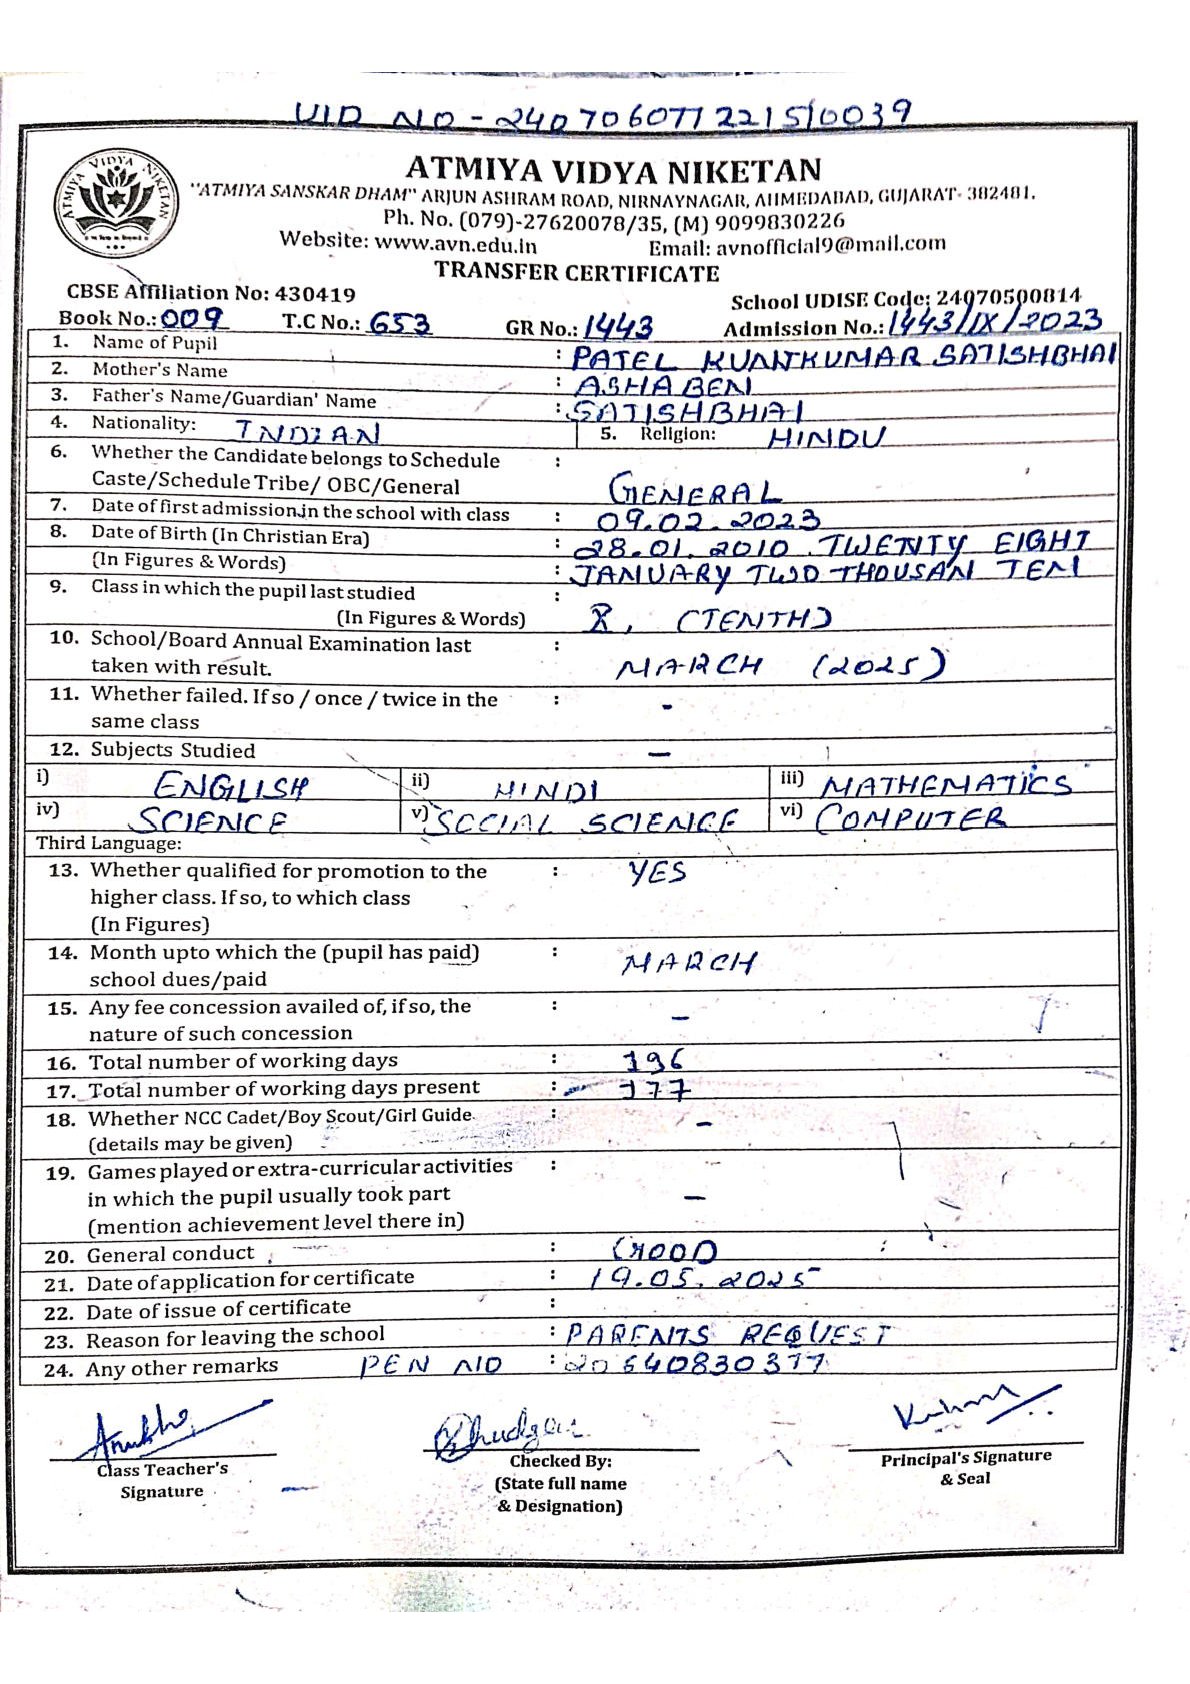 UID NO - 240706077221510039
ATMIYA VIDYA NIKETAN
ATMIYA VIDYA NIKETAN
"ATMIYA SANSKAR DHAM" ARJUN ASHRAM ROAD, NIRNAYNAGAR, AHMEDABAD, GUJARAT- 382481.
Ph. No. (079)-27620078/35, (M) 9099830226
Website: www.avn.edu.in Email: avnofficial9@mail.com
TRANSFER CERTIFICATE
CBSE Affiliation No: 430419 School UDISE Code: 24070500814
Book No.: 009 T.C No.: 653 GR No.: 1443 Admission No.: 1443/IX/2023
1. Name of Pupil : PATEL KUNTKUMAR SATISHBHAI
2. Mother's Name : ASHABEN
3. Father's Name/Guardian' Name : SATISHBHAI
4. Nationality: INDIAN 5. Religion: HINDU
6. Whether the Candidate belongs to Schedule :
Caste/Schedule Tribe/ OBC/General GENERAL
7. Date of first admission in the school with class : 09.02.2023
8. Date of Birth (In Christian Era) : 28.01.2010 TWENTY EIGHT
(In Figures & Words) : JANUARY TWO THOUSAN TEN
9. Class in which the pupil last studied :
(In Figures & Words) X, (TENTH)
10. School/Board Annual Examination last :
taken with result. MARCH (2025)
11. Whether failed. If so / once / twice in the : -
same class
12. Subjects Studied -
i) ENGLISH ii) HINDI iii) MATHEMATICS
iv) SCIENCE v) SOCIAL SCIENCE vi) COMPUTER
Third Language:
13. Whether qualified for promotion to the : YES
higher class. If so, to which class
(In Figures)
14. Month upto which the (pupil has paid) : MARCH
school dues/paid
15. Any fee concession availed of, if so, the : -
nature of such concession
16. Total number of working days : 196
17. Total number of working days present : 177
18. Whether NCC Cadet/Boy Scout/Girl Guide : -
(details may be given)
19. Games played or extra-curricular activities :
in which the pupil usually took part -
(mention achievement level there in)
20. General conduct : GOOD
21. Date of application for certificate : 19.05.2025
22. Date of issue of certificate :
23. Reason for leaving the school : PARENTS REQUEST
24. Any other remarks PEN NO : 20640830377
Class Teacher's Checked By: Principal's Signature
Signature (State full name & Seal
& Designation)